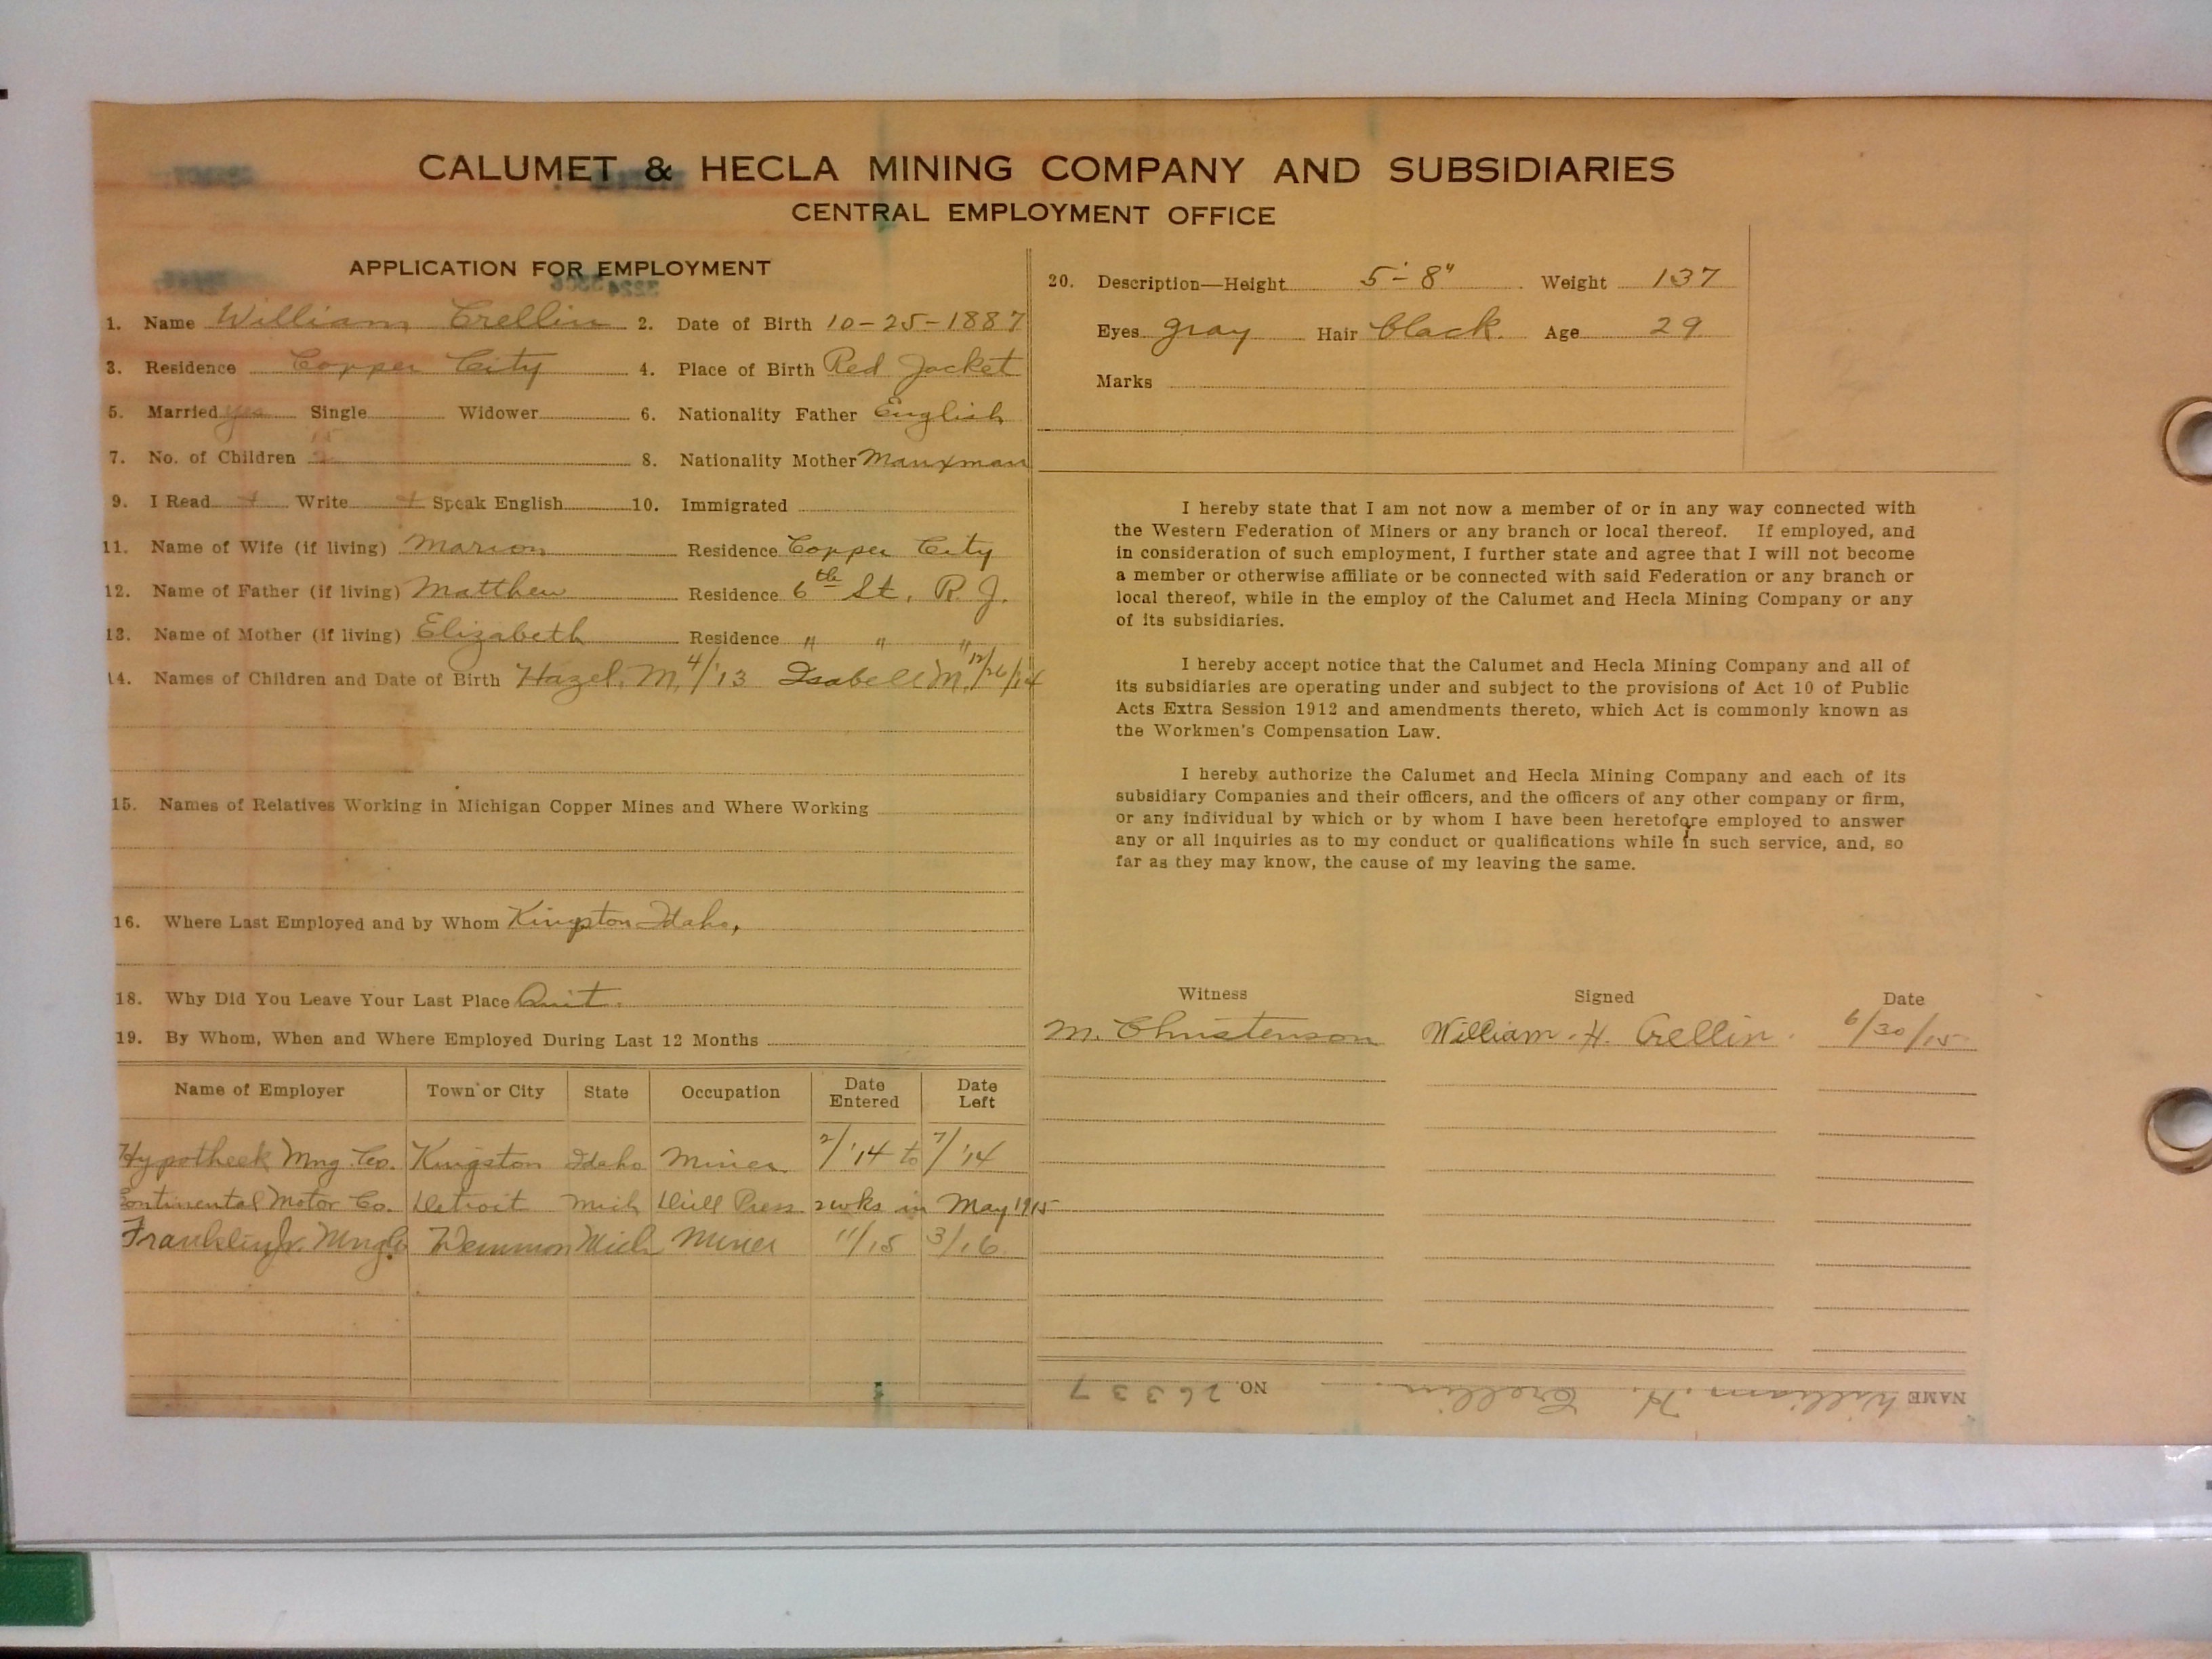 CALUMET & HECLA MINING COMPANY AND SUBSIDIARIES
CENTRAL EMPLOYMENT OFFICE
APPLICATION FOR EMPLOYMENT
1. Name William Crellin 2. Date of Birth 10-25-1887
3. Residence Copper City 4. Place of Birth Red Jacket
5. Married yes Single Widower 6. Nationality Father English
7. No. of Children 2 8. Nationality Mother Manxman
9. I Read + Write + Speak English 10. Immigrated
11. Name of Wife (if living) Marion Residence Copper City
12. Name of Father (if living) Matthew Residence 6th St. R. J.
13. Name of Mother (if living) Elizabeth Residence " " "
14. Names of Children and Date of Birth Hazel. M. 4/'13 Isabell M. 12/26/14
15. Names of Relatives Working in Michigan Copper Mines and Where Working
16. Where Last Employed and by Whom Kingston Idaho,
18. Why Did You Leave Your Last Place Quit.
19. By Whom, When and Where Employed During Last 12 Months
Name of Employer Town or City State Occupation Date Entered Date Left
Hypotheek Mng. Co. Kingston Idaho Miner 2/'14 to 7/'14
Continental Motor Co. Detroit Mich Drill Press 2 wks in May 1915
Franklin Jr. Mng Co. Mich Miner 11/15 3/16
20. Description—Height 5'-8" Weight 137
Eyes gray Hair black. Age 29
Marks
I hereby state that I am not now a member of or in any way connected with
the Western Federation of Miners or any branch or local thereof. If employed, and
in consideration of such employment, I further state and agree that I will not become
a member or otherwise affiliate or be connected with said Federation or any branch or
local thereof, while in the employ of the Calumet and Hecla Mining Company or any
of its subsidiaries.
I hereby accept notice that the Calumet and Hecla Mining Company and all of
its subsidiaries are operating under and subject to the provisions of Act 10 of Public
Acts Extra Session 1912 and amendments thereto, which Act is commonly known as
the Workmen's Compensation Law.
I hereby authorize the Calumet and Hecla Mining Company and each of its
subsidiary Companies and their officers, and the officers of any other company or firm,
or any individual by which or by whom I have been heretofore employed to answer
any or all inquiries as to my conduct or qualifications while in such service, and, so
far as they may know, the cause of my leaving the same.
Witness Signed Date
M. Christenson William. H. Crellin. 6/30/15
NAME William. H. Crellin. NO. 26337